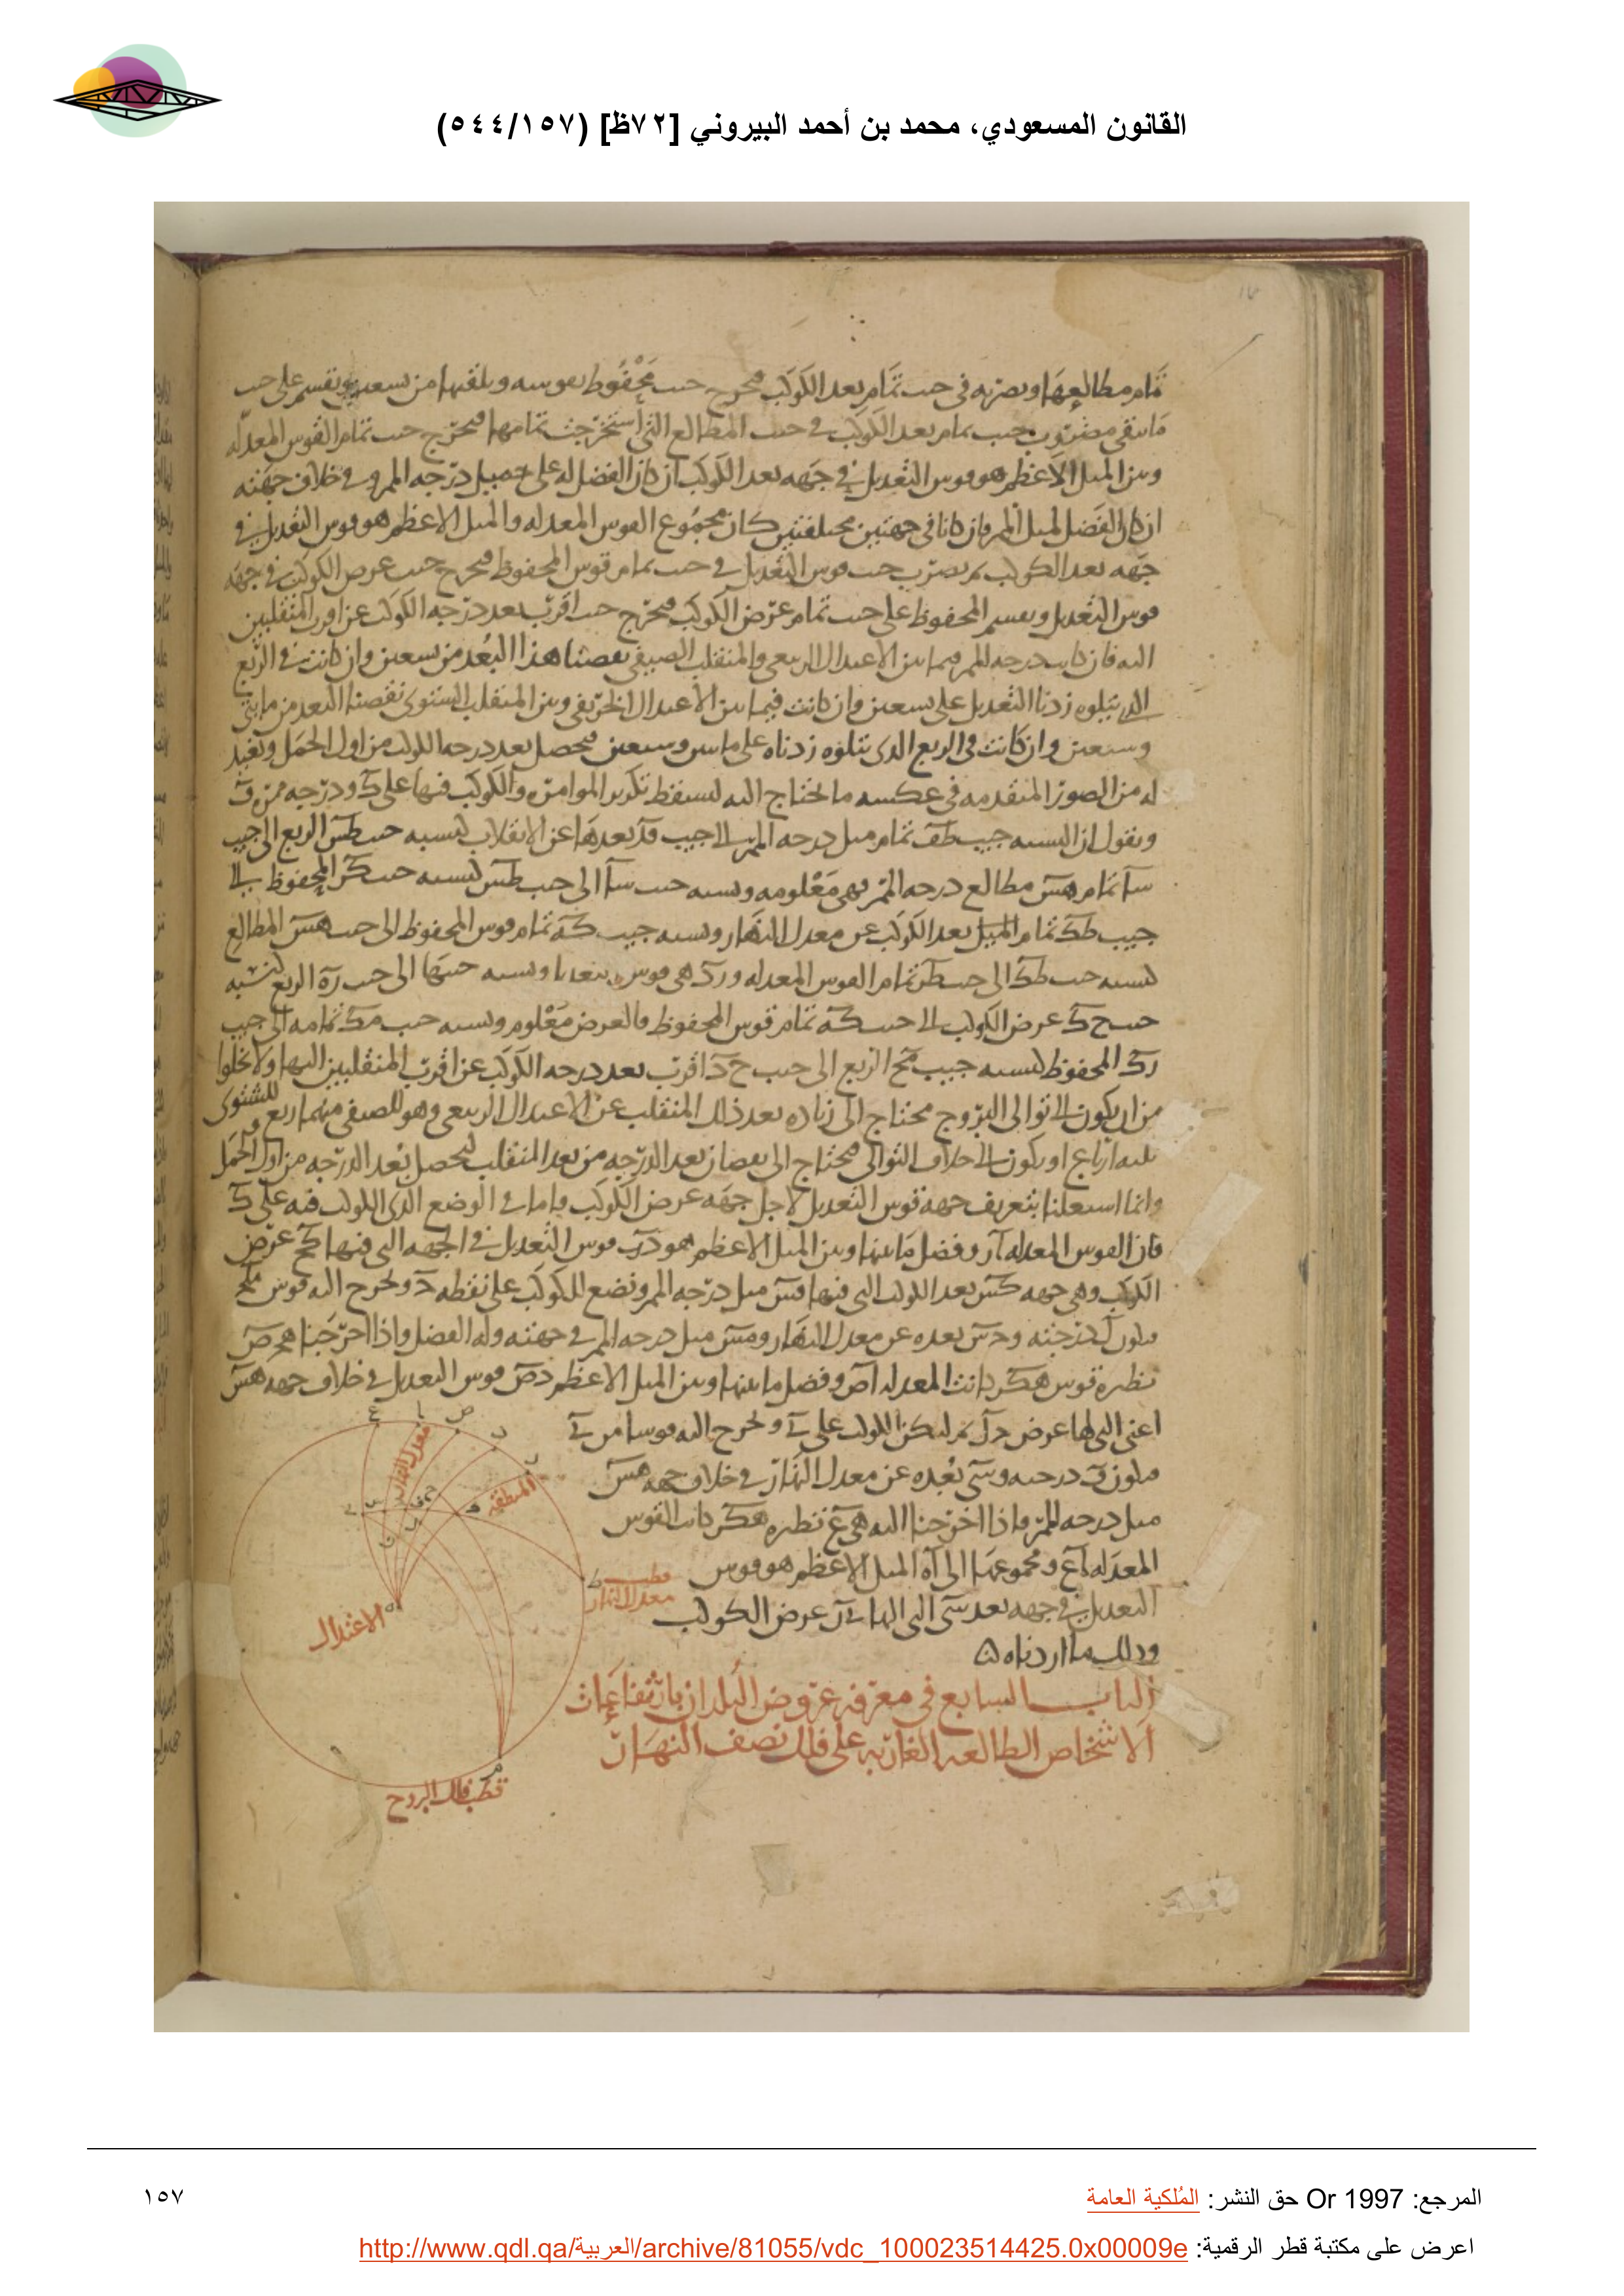 القانون المسعودي، محمد بن أحمد البيروني [٧٢ظ] (٥٤٤/١٥٧)
تمام مطالعها ونضربه في جيب تمام بعد الكوكب فيخرج جيب محفوظ نقوسه ونلقيها من تسعين ونقسم على جيب
ما يبقى مضروب جيب تمام بعد الكوكب في جيب المطالع التي استخرجت تمامها فيخرج جيب تمام القوس المعدله
وبين الميل الاعظم هو قوس التعديل في جهه بعد الكوكب ان كان الفضل له على ميل درجه الممر وفي خلاف جهته
ان كان الفضل لميل الممر فان كانا في جهتين مختلفتين كان مجموع القوس المعدله والميل الاعظم هو قوس التعديل في
جهه بعد الكوكب ثم نضرب جيب قوس التعديل في جيب تمام قوس المحفوظ فيخرج جيب عرض الكوكب في جهه
قوس التعديل ونقسم المحفوظ على جيب تمام عرض الكوكب فيخرج جيب اقرب بعد درجه الكوكب عن اقرب المنقلبين
اليه فان كانت درجه الممر فيما بين الاعتدال الربيعي والمنقلب الصيفي نقصنا هذا البعد من تسعين وان كانت في الربع
الذي يتلوه زدنا التعديل على تسعين وان كانت فيما بين الاعتدال الخريفي وبين المنقلب الشتوي نقصنا البعد من مايتين
وسبعين وان كانت في الربع الذي يتلوه زدناه على مايتين وسبعين فيحصل بعد درجه الكوكب من اول الحمل ونعيد
له من الصور المتقدمه في عكسه ما نحتاج اليه ليسقط تكرير الموامره والكوكب فيها على ك ودرجه ممره ف
ونقول ان نسبه جيب طف تمام ميل درجه الممر الى جيب فد بعدها عن الانقلاب كنسبه جيب طس الربع الى جيب
سا تمام هس مطالع درجه الممر فهي معلومه ونسبه جيب سا الى جيب طس كنسبه جيب كر المحفوظ الى
جيب طك تمام الميل بعد الكوكب عن معدل النهار ونسبه جيب كه تمام قوس المحفوظ الى جيب هس المطالع
كنسبه جيب طك الى جيب طر تمام القوس المعدله ورد هي قوس ونسبه جيبها الى جيب ره الربع كنسبه
جيب ح ك عرض الكوكب الى جيب كه تمام قوس المحفوظ فالعرض معلوم ونسبه جيب مك تمامه الى جيب
رك المحفوظ كنسبه جيب مح الربع الى جيب ح د اقرب بعد درجه الكوكب عن اقرب المنقلبين اليها ولا يخلوا
من ان يكون الى توالى البروج فيحتاج الى زياده بعد ذلك المنقلب عن الاعتدال الربيعي وهو للصيفي منهما ربع وللشتوي
ثلثه ارباع او يكون الى خلاف التوالي فيحتاج الى نقصان بعد الدرجه من بعد المنقلب ليحصل بعد الدرجه من اول الحمل
وانما استعملنا بتعريف جهه قوس التعديل لاجل جهه عرض الكوكب واما في الوضع الذي الكوكب فيه على ك
فان القوس المعدله ار وفضل ما بينها وبين الميل الاعظم هو در قوس التعديل في الجهه التي فيها كح عرض
الكوكب وهي جهه كس بعد الكوكب التي فيها فس ميل درجه الممر ونضع للكوكب على نقطه ح ونخرج اليه قوس مح
فيكون درجته وحس بعده عن معدل النهار وفس ميل درجه الممر في جهته وله الفضل واذا اخرجنا هحص
نظيره قوس هكر كانت المعدله اص وفضل ما بينها وبين الميل الاعظم دص قوس التعديل في خلاف جهه هس
اعني التي لها عرض ثم ليكن الكوكب على ي ونخرج اليه قوسا من
فيكون ق درجته وسي بعده عن معدل النهار في خلاف جهه هس
ميل درجه الممر فاذا اخرجنا اليه هي ع نظيره هكر كانت القوس
المعدله اع ومجموعها الى اه الميل الاعظم هو قوس
التعديل في جهه بعد سي التي اليها عرض الكوكب
وذلك ما اردناه
الباب السابع في معرفه عروض البلدان بارتفاعات
الاشخاص الطالعه الغاربه على فلك نصف النهار
معدل النهار
المنطقه
قطب
معدل النهار
الاعتدال
قطب فلك البروج
المرجع: Or 1997 حق النشر: المُلكية العامة
١٥٧
اعرض على مكتبة قطر الرقمية: http://www.qdl.qa/العربية/archive/81055/vdc_100023514425.0x00009e